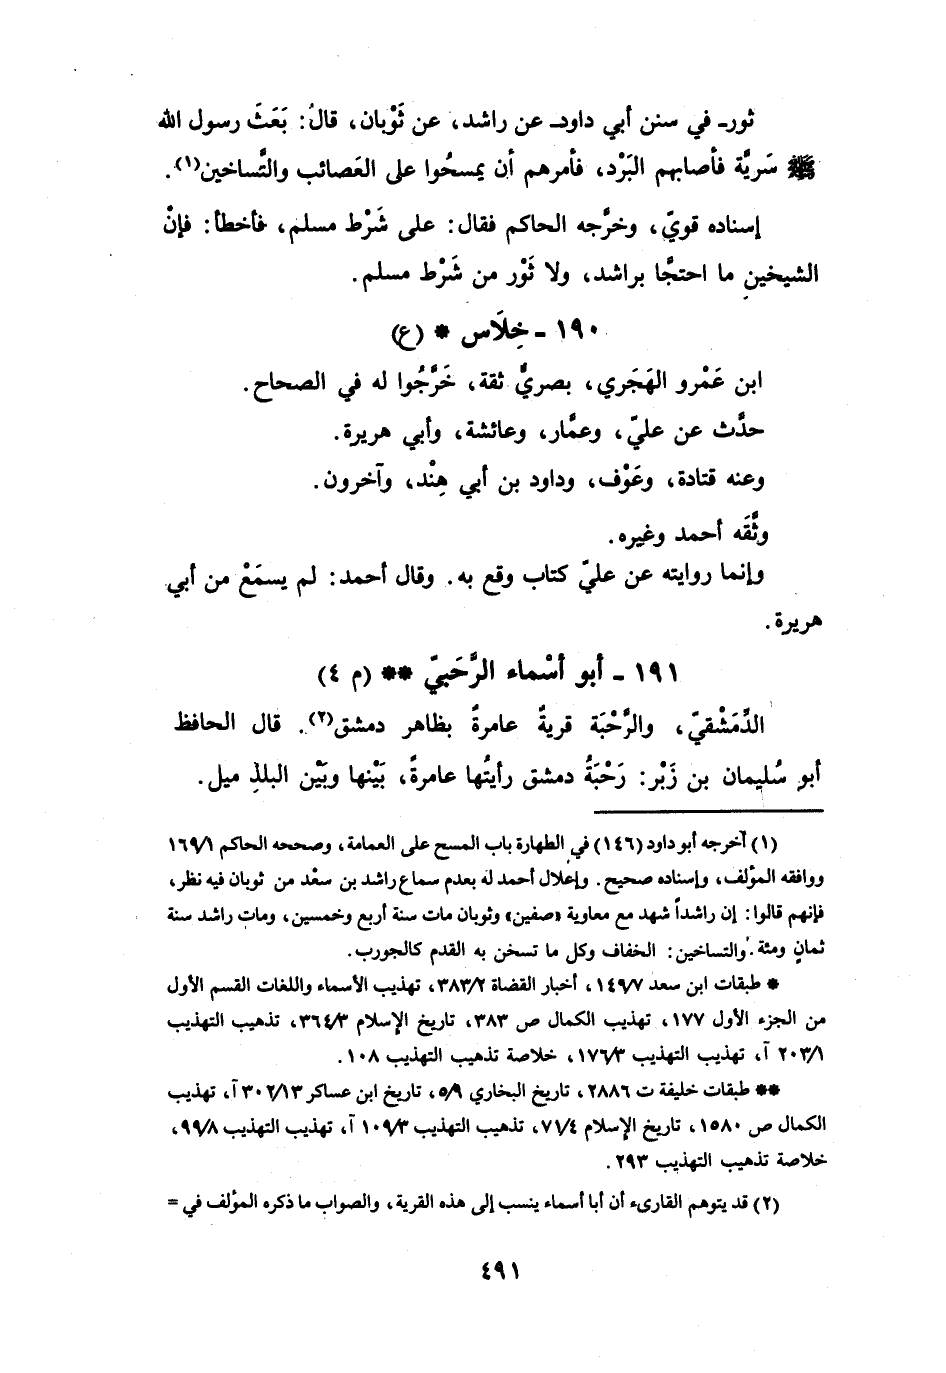 ثور ـ في سنن أبي داود ـ عن راشد، عن ثَوْبان، قالُ: بَعَثَ رسول الله
ﷺ سَريَّة فأصابهم البَرْد، فأمرهم أن يمسحُوا على العَصائب والتَّساخين(١).
إسناده قويّ، وخرَّجه الحاكم فقال: على شَرْط مسلم، فأخطأ: فإنْ
الشيخين ما احتجَّا براشد، ولا ثَوْر من شَرْط مسلم.
١٩٠ ـ خِلَاس * (ع)
ابن عَمْرو الهَجَري، بصريٌّ ثقة، خَرَّجُوا له في الصحاح.
حدَّث عن عليّ، وعمَّار، وعائشة، وأبي هريرة.
وعنه قتادة، وعَوْف، وداود بن أبي هِنْد، وآخرون.
وثَّقَه أحمد وغيره.
وإنما روايته عن عليّ كتاب وقع به. وقال أحمد: لم يسمَعْ من أبي
هريرة.
١٩١ ـ أبو أسْماء الرَّحَبيّ ** (م ٤)
الدِّمَشْقيّ، والرَّحْبَة قريةٌ عامرةٌ بظاهر دمشق(٢). قال الحافظ
أبو سُليمان بن زَبْر: رَحْبَةُ دمشق رأيتُها عامرةً، بَيْنها وبَيْن البلد ميل.
(١) آخرجه أبو داود (١٤٦) في الطهارة باب المسح على العمامة، وصححه الحاكم ١٦٩/١
ووافقه المؤلف، وإسناده صحيح. وإعلال أحمد له بعدم سماع راشد بن سعْد من ثوبان فيه نظر،
فإنهم قالوا: إن راشداً شهد مع معاوية «صفين» وثوبان مات سنة أربع وخمسين، ومات راشد سنة
ثمانٍ ومئة. والتساخين: الخفاف وكل ما تسخن به القدم كالجورب.
* طبقات ابن سعد ١٤٩/٧، أخبار القضاة ٣٨٣/٢، تهذيب الأسماء واللغات القسم الأول
من الجزء الأول ١٧٧، تهذيب الكمال ص ٣٨٣، تاريخ الإسلام ٣٦٤/٣، تذهيب التهذيب
٢٠٣/١ آ، تهذيب التهذيب ١٧٦/٣، خلاصة تذهيب التهذيب ١٠٨.
** طبقات خليفة ت ٢٨٨٦، تاريخ البخاري ٥/٩، تاريخ ابن عساكر ٣٠٢/١٣ آ، تهذيب
الكمال ص ١٥٨٠، تاريخ الإسلام ٧١/٤، تذهيب التهذيب ١٠٩/٣ آ، تهذيب التهذيب ٩٩/٨،
خلاصة تذهيب التهذيب ٢٩٣.
(٢) قد يتوهم القارىء أن أبا أسماء ينسب إلى هذه القرية، والصواب ما ذكره المؤلف في =
٤٩١